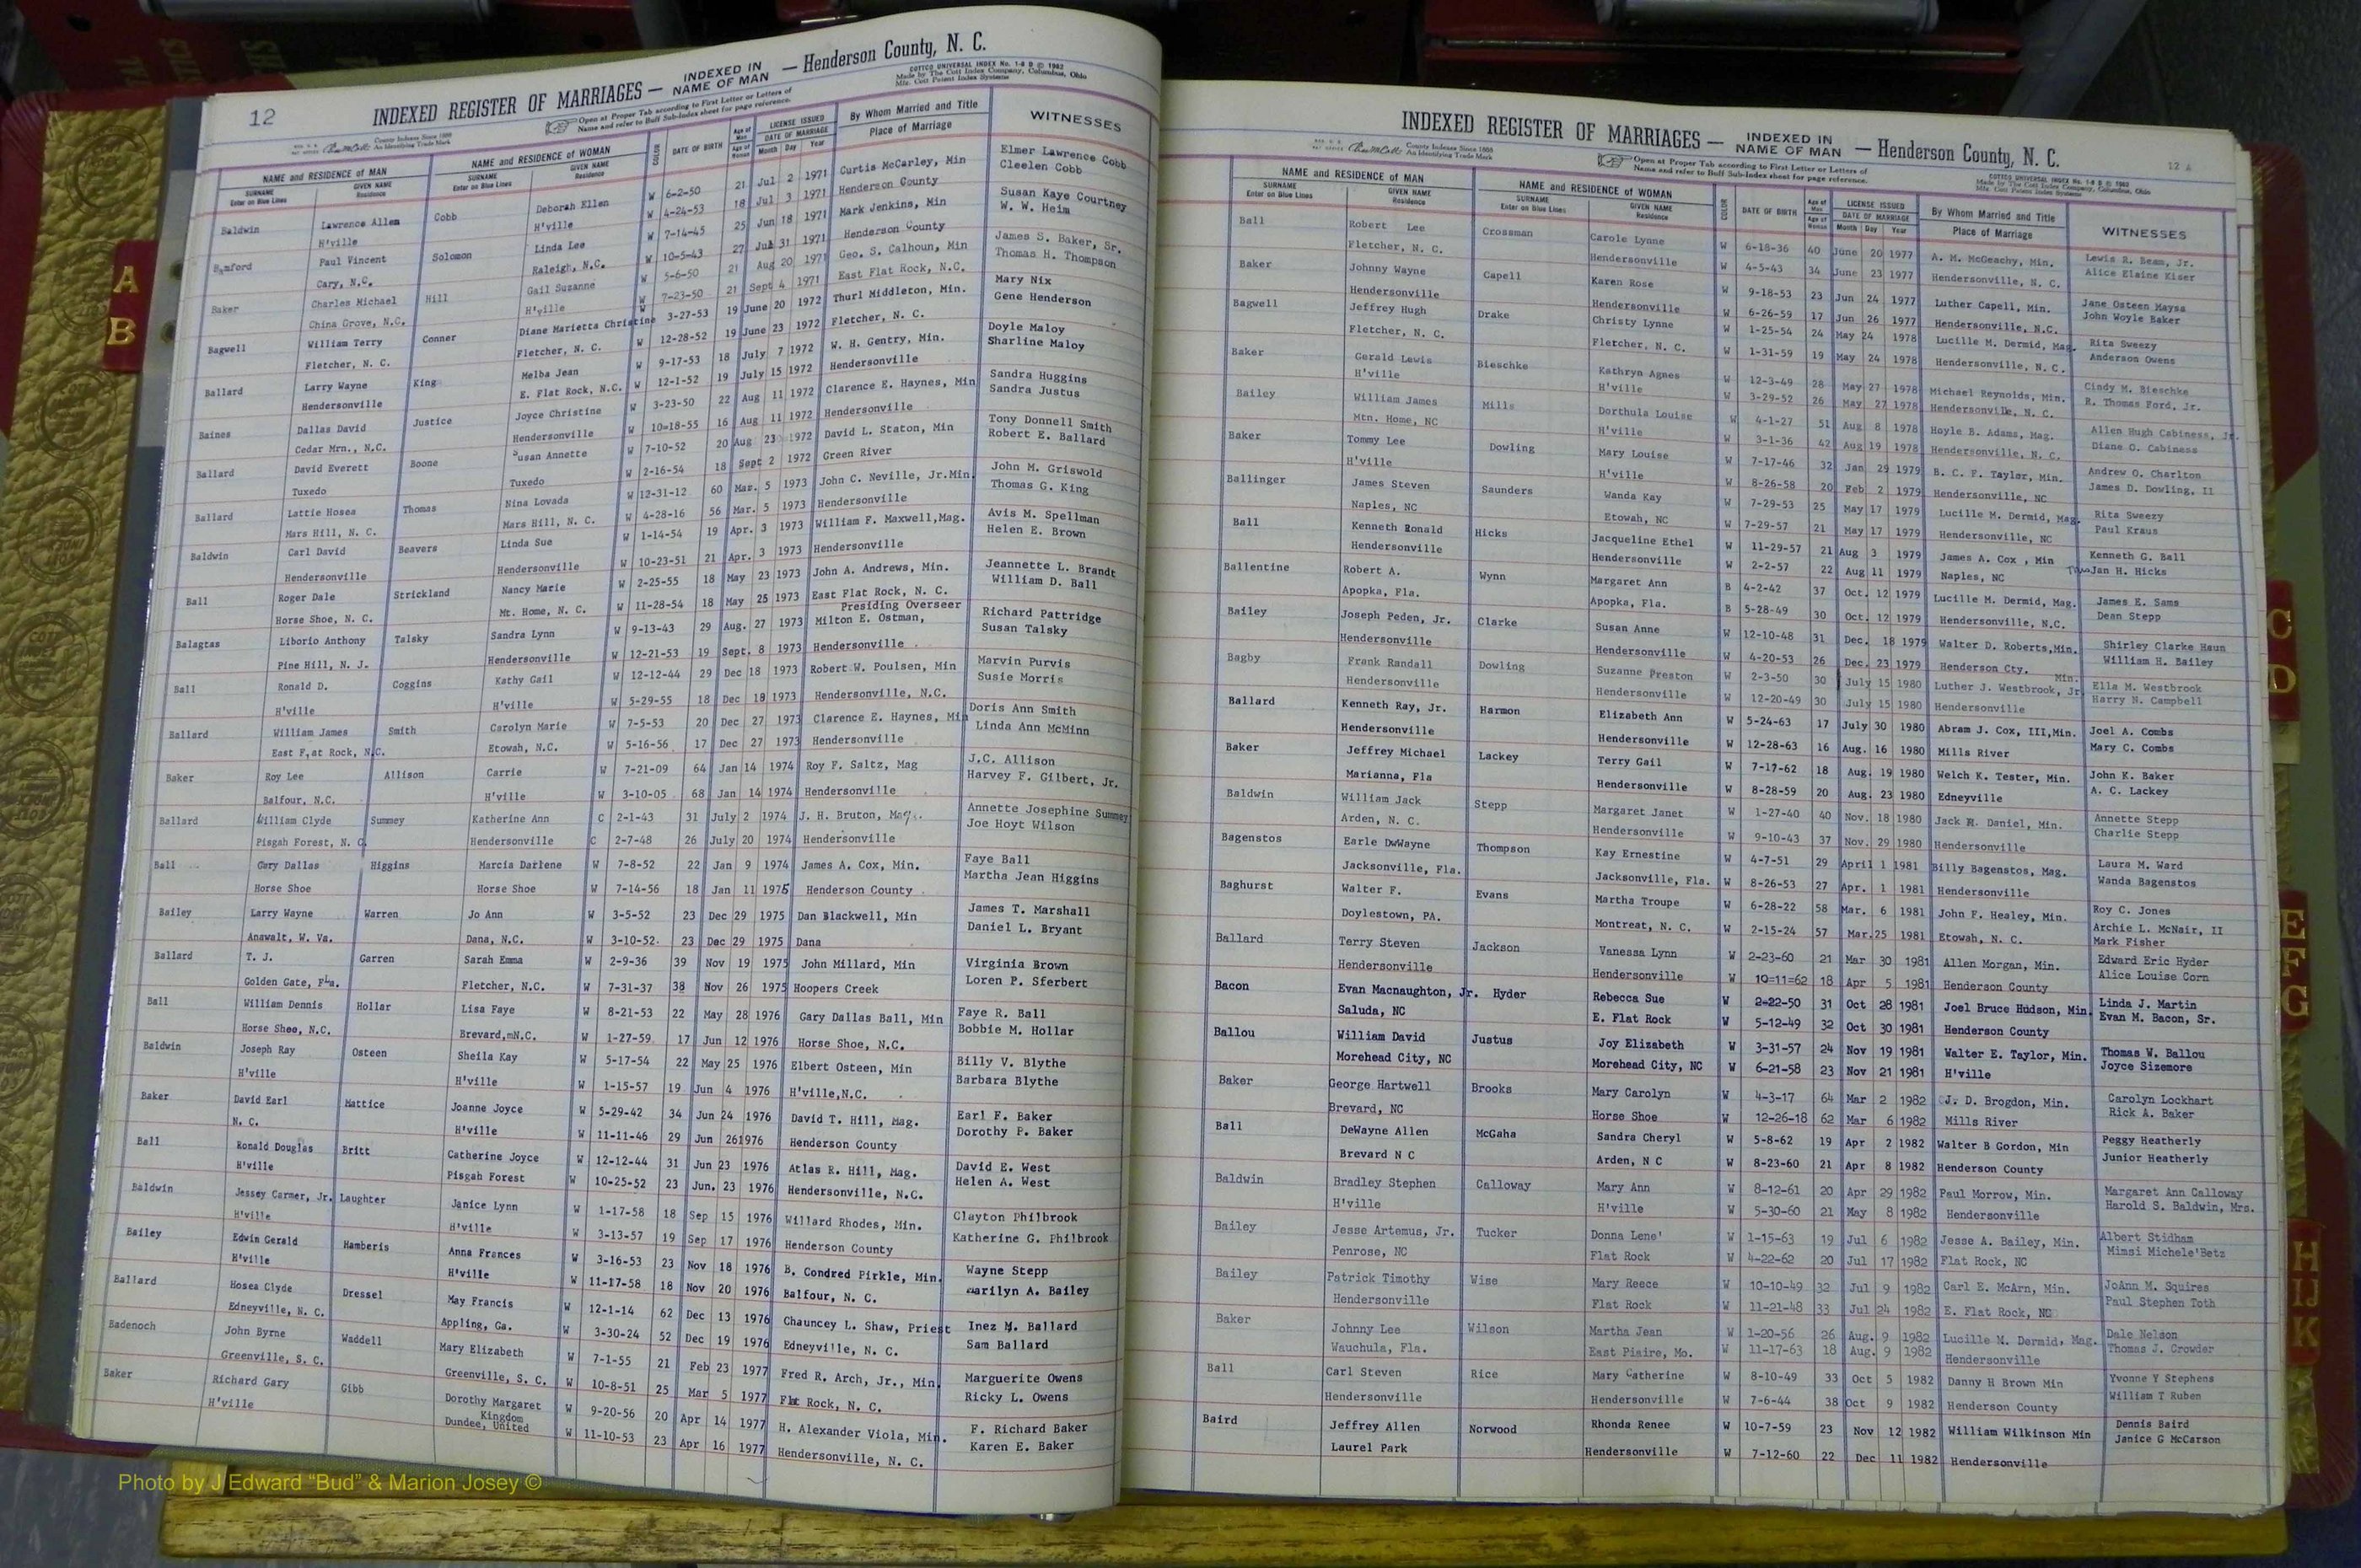 12
INDEXED REGISTER OF MARRIAGES — INDEXED IN NAME OF MAN — Henderson County, N. C.
COTTCO UNIVERSAL INDEX No. 1-8 D © 1962
Made by The Cott Index Company, Columbus, Ohio
Mfg. Cott Patent Index Systems
Open at Proper Tab according to First Letter or Letters of
Name and refer to Buff Sub-Index sheet for page reference.
County Indexes Since 1888
An Identifying Trade Mark
NAME and RESIDENCE OF MAN NAME and RESIDENCE OF WOMAN COLOR DATE OF BIRTH Age of Man Age of Woman LICENSE ISSUED DATE OF MARRIAGE By Whom Married and Title Place of Marriage WITNESSES
SURNAME Enter on Blue Lines GIVEN NAME Residence SURNAME Enter on Blue Lines GIVEN NAME Residence Month Day Year
Baldwin Lawrence Allen Cobb Deborah Ellen W 6-2-50 21 Jul 2 1971 Curtis McCarley, Min Elmer Lawrence Cobb
H'ville H'ville W 4-24-53 18 Jul 3 1971 Henderson County Cleelen Cobb
Bamford Paul Vincent Solomon Linda Lee W 7-14-45 25 Jun 18 1971 Mark Jenkins, Min Susan Kaye Courtney
Cary, N.C. Raleigh, N.C. W 10-5-43 27 Jul 31 1971 Henderson County W. W. Heim
Baker Charles Michael Hill Gail Suzanne W 5-6-50 21 Aug 20 1971 Geo. S. Calhoun, Min James S. Baker, Sr.
China Grove, N.C. H'ville W 7-23-50 21 Sept 4 1971 East Flat Rock, N.C. Thomas H. Thompson
Bagwell William Terry Conner Diane Marietta Christine W 3-27-53 19 June 20 1972 Thurl Middleton, Min. Mary Nix
Fletcher, N. C. Fletcher, N. C. W 12-28-52 19 June 23 1972 Fletcher, N. C. Gene Henderson
Ballard Larry Wayne King Melba Jean W 9-17-53 18 July 7 1972 W. H. Gentry, Min. Doyle Maloy
Hendersonville E. Flat Rock, N.C. W 12-1-52 19 July 15 1972 Hendersonville Sharline Maloy
Baines Dallas David Justice Joyce Christine W 3-23-50 22 Aug 11 1972 Clarence E. Haynes, Min Sandra Huggins
Cedar Mrn., N.C. Hendersonville W 10-18-55 16 Aug 11 1972 Hendersonville Sandra Justus
Ballard David Everett Boone Susan Annette W 7-10-52 20 Aug 23 1972 David L. Staton, Min Tony Donnell Smith
Tuxedo Tuxedo W 2-16-54 18 Sept 2 1972 Green River Robert E. Ballard
Ballard Lattie Hosea Thomas Nina Lovada W 12-31-12 60 Mar. 5 1973 John C. Neville, Jr.Min John M. Griswold
Mars Hill, N. C. Mars Hill, N. C. W 4-28-16 56 Mar. 5 1973 Hendersonville Thomas G. King
Baldwin Carl David Beavers Linda Sue W 1-14-54 19 Apr. 3 1973 William F. Maxwell,Mag. Avis M. Spellman
Hendersonville Hendersonville W 10-23-51 21 Apr. 3 1973 Hendersonville Helen E. Brown
Ball Roger Dale Strickland Nancy Marie W 2-25-55 18 May 23 1973 John A. Andrews, Min. Jeannette L. Brandt
Horse Shoe, N. C. Mt. Home, N. C. W 11-28-54 18 May 25 1973 East Flat Rock, N. C. William D. Ball
Presiding Overseer
Balagtas Liborio Anthony Talsky Sandra Lynn W 9-13-43 29 Aug. 27 1973 Milton E. Ostman, Richard Pattridge
Pine Hill, N. J. Hendersonville W 12-21-53 19 Sept. 8 1973 Hendersonville Susan Talsky
Ball Ronald D. Coggins Kathy Gail W 12-12-44 29 Dec 18 1973 Robert W. Poulsen, Min Marvin Purvis
H'ville H'ville W 5-29-55 18 Dec 18 1973 Hendersonville, N.C. Susie Morris
Ballard William James Smith Carolyn Marie W 7-5-53 20 Dec 27 1973 Clarence E. Haynes, Min Doris Ann Smith
East F,at Rock, N.C. Etowah, N.C. W 5-16-56 17 Dec 27 1973 Hendersonville Linda Ann McMinn
Baker Roy Lee Allison Carrie W 7-21-09 64 Jan 14 1974 Roy F. Saltz, Mag J.C. Allison
Balfour, N.C. H'ville W 3-10-05 68 Jan 14 1974 Hendersonville Harvey F. Gilbert, Jr.
Ballard William Clyde Summey Katherine Ann C 2-1-43 31 July 2 1974 J. H. Bruton, Mag. Annette Josephine Summey
Pisgah Forest, N. C. Hendersonville C 2-7-48 26 July 20 1974 Hendersonville Joe Hoyt Wilson
Ball Gary Dallas Higgins Marcia Darlene W 7-8-52 22 Jan 9 1974 James A. Cox, Min. Faye Ball
Horse Shoe Horse Shoe W 7-14-56 18 Jan 11 1975 Henderson County Martha Jean Higgins
Bailey Larry Wayne Warren Jo Ann W 3-5-52 23 Dec 29 1975 Dan Blackwell, Min James T. Marshall
Anawalt, W. Va. Dana, N.C. W 3-10-52. 23 Dec 29 1975 Dana Daniel L. Bryant
Ballard T. J. Garren Sarah Emma W 2-9-36 39 Nov 19 1975 John Millard, Min Virginia Brown
Golden Gate, Fla. Fletcher, N.C. W 7-31-37 38 Nov 26 1975 Hoopers Creek Loren P. Sferbert
Ball William Dennis Hollar Lisa Faye W 8-21-53 22 May 28 1976 Gary Dallas Ball, Min Faye R. Ball
Horse Shoe, N.C. Brevard,mN.C. W 1-27-59. 17 Jun 12 1976 Horse Shoe, N.C. Bobbie M. Hollar
Baldwin Joseph Ray Osteen Sheila Kay W 5-17-54 22 May 25 1976 Elbert Osteen, Min Billy V. Blythe
H'ville H'ville W 1-15-57 19 Jun 4 1976 H'ville,N.C. Barbara Blythe
Baker David Earl Mattice Joanne Joyce W 5-29-42 34 Jun 24 1976 David T. Hill, Mag. Earl F. Baker
N. C. H'ville W 11-11-46 29 Jun 261976 Henderson County Dorothy P. Baker
Ball Ronald Douglas Britt Catherine Joyce W 12-12-44 31 Jun 23 1976 Atlas R. Hill, Mag. David E. West
H'ville Pisgah Forest W 10-25-52 23 Jun. 23 1976 Hendersonville, N.C. Helen A. West
Baldwin Jessey Carmer, Jr. Laughter Janice Lynn W 1-17-58 18 Sep 15 1976 Willard Rhodes, Min. Clayton Philbrook
H'ville H'ville W 3-13-57 19 Sep 17 1976 Henderson County Katherine G. Philbrook
Bailey Edwin Gerald Hamberis Anna Frances W 3-16-53 23 Nov 18 1976 B. Condred Pirkle, Min. Wayne Stepp
H'ville H'ville W 11-17-58 18 Nov 20 1976 Balfour, N. C. marilyn A. Bailey
Ballard Hosea Clyde Dressel May Francis W 12-1-14 62 Dec 13 1976 Chauncey L. Shaw, Priest Inez M. Ballard
Edneyville, N. C. Appling, Ga. W 3-30-24 52 Dec 19 1976 Edneyville, N. C. Sam Ballard
Badenoch John Byrne Waddell Mary Elizabeth W 7-1-55 21 Feb 23 1977 Fred R. Arch, Jr., Min. Marguerite Owens
Greenville, S. C. Greenville, S. C. W 10-8-51 25 Mar 5 1977 Flat Rock, N. C. Ricky L. Owens
Baker Richard Gary Gibb Dorothy Margaret W 9-20-56 20 Apr 14 1977 H. Alexander Viola, Min. F. Richard Baker
H'ville Kingdom
Dundee, United W 11-10-53 23 Apr 16 1977 Hendersonville, N. C. Karen E. Baker
INDEXED REGISTER OF MARRIAGES — INDEXED IN NAME OF MAN — Henderson County, N. C.
12 A
COTTCO UNIVERSAL INDEX No. 1-8 D © 1962
Made by The Cott Index Company, Columbus, Ohio
Mfg. Cott Patent Index Systems
Open at Proper Tab according to First Letter or Letters of
Name and refer to Buff Sub-Index sheet for page reference.
County Indexes Since 1888
An Identifying Trade Mark
NAME and RESIDENCE OF MAN NAME and RESIDENCE OF WOMAN COLOR DATE OF BIRTH Age of Man Age of Woman LICENSE ISSUED DATE OF MARRIAGE By Whom Married and Title Place of Marriage WITNESSES
SURNAME Enter on Blue Lines GIVEN NAME Residence SURNAME Enter on Blue Lines GIVEN NAME Residence Month Day Year
Ball Robert Lee Crossman Carole Lynne W 6-18-36 40 June 20 1977 A. M. McGeachy, Min. Lewis R. Beam, Jr.
Fletcher, N. C. Hendersonville W 4-5-43 34 June 23 1977 Hendersonville, N. C. Alice Elaine Kiser
Baker Johnny Wayne Capell Karen Rose W 9-18-53 23 Jun 24 1977 Luther Capell, Min. Jane Osteen Mayse
Hendersonville Hendersonville W 6-26-59 17 Jun 26 1977 Hendersonville, N.C. John Woyle Baker
Bagwell Jeffrey Hugh Drake Christy Lynne W 1-25-54 24 May 24 1978 Lucille M. Dermid, Mag. Rita Sweezy
Fletcher, N. C. Fletcher, N. C. W 1-31-59 19 May 24 1978 Hendersonville, N. C. Anderson Owens
Baker Gerald Lewis Bieschke Kathryn Agnes W 12-3-49 28 May 27 1978 Michael Reynolds, Min. Cindy M. Bieschke
H'ville H'ville W 3-29-52 26 May 27 1978 Hendersonville, N. C. R. Thomas Ford, Jr.
Bailey William James Mills Dorthula Louise W 4-1-27 51 Aug 8 1978 Hoyle B. Adams, Mag. Allen Hugh Cabiness, Jr.
Mtn. Home, NC H'ville W 3-1-36 42 Aug 19 1978 Hendersonville, N. C. Diane O. Cabiness
Baker Tommy Lee Dowling Mary Louise W 7-17-46 32 Jan 29 1979 B. C. F. Taylor, Min. Andrew O. Charlton
H'ville H'ville W 8-26-58 20 Feb 2 1979 Hendersonville, NC James D. Dowling, II
Ballinger James Steven Saunders Wanda Kay W 7-29-53 25 May 17 1979 Lucille M. Dermid, Mag. Rita Sweezy
Naples, NC Etowah, NC W 7-29-57 21 May 17 1979 Hendersonville, NC Paul Kraus
Ball Kenneth Ronald Hicks Jacqueline Ethel W 11-29-57 21 Aug 3 1979 James A. Cox , Min Kenneth G. Ball
Hendersonville Hendersonville W 2-2-57 22 Aug 11 1979 Naples, NC Jan H. Hicks
Ballentine Robert A. Wynn Margaret Ann B 4-2-42 37 Oct. 12 1979 Lucille M. Dermid, Mag. James E. Sams
Apopka, Fla. Apopka, Fla. B 5-28-49 30 Oct. 12 1979 Hendersonville, N.C. Dean Stepp
Bailey Joseph Peden, Jr. Clarke Susan Anne W 12-10-48 31 Dec. 18 1979 Walter D. Roberts,Min. Shirley Clarke Haun
Hendersonville Hendersonville W 4-20-53 26 Dec. 23 1979 Henderson Cty. William H. Bailey
Bagby Frank Randall Dowling Suzanne Preston W 2-3-50 30 July 15 1980 Luther J. Westbrook, Jr Min. Ella M. Westbrook
Hendersonville Hendersonville W 12-20-49 30 July 15 1980 Hendersonville Harry N. Campbell
Ballard Kenneth Ray, Jr. Harmon Elizabeth Ann W 5-24-63 17 July 30 1980 Abram J. Cox, III,Min. Joel A. Combs
Hendersonville Hendersonville W 12-28-63 16 Aug. 16 1980 Mills River Mary C. Combs
Baker Jeffrey Michael Lackey Terry Gail W 7-17-62 18 Aug. 19 1980 Welch K. Tester, Min. John K. Baker
Marianna, Fla Hendersonville W 8-28-59 20 Aug. 23 1980 Edneyville A. C. Lackey
Baldwin William Jack Stepp Margaret Janet W 1-27-40 40 Nov. 18 1980 Jack R. Daniel, Min. Annette Stepp
Arden, N. C. Hendersonville W 9-10-43 37 Nov. 29 1980 Hendersonville Charlie Stepp
Bagenstos Earle DwWayne Thompson Kay Ernestine W 4-7-51 29 April 1 1981 Billy Bagenstos, Mag. Laura M. Ward
Jacksonville, Fla. Jacksonville, Fla. W 8-26-53 27 Apr. 1 1981 Hendersonville Wanda Bagenstos
Baghurst Walter F. Evans Martha Troupe W 6-28-22 58 Mar. 6 1981 John F. Healey, Min. Roy C. Jones
Doylestown, PA. Montreat, N. C. W 2-15-24 57 Mar.25 1981 Etowah, N. C. Archie L. McNair, II
Mark Fisher
Ballard Terry Steven Jackson Vanessa Lynn W 2-23-60 21 Mar 30 1981 Allen Morgan, Min. Edward Eric Hyder
Hendersonville Hendersonville W 10=11=62 18 Apr 5 1981 Henderson County Alice Louise Corn
Bacon Evan Macnaughton, Jr. Hyder Rebecca Sue W 2-22-50 31 Oct 28 1981 Joel Bruce Hudson, Min. Linda J. Martin
Saluda, NC E. Flat Rock W 5-12-49 32 Oct 30 1981 Henderson County Evan M. Bacon, Sr.
Ballou William David Justus Joy Elizabeth W 3-31-57 24 Nov 19 1981 Walter E. Taylor, Min. Thomas W. Ballou
Morehead City, NC Morehead City, NC W 6-21-58 23 Nov 21 1981 H'ville Joyce Sizemore
Baker George Hartwell Brooks Mary Carolyn W 4-3-17 64 Mar 2 1982 J. D. Brogdon, Min. Carolyn Lockhart
Brevard, NC Horse Shoe W 12-26-18 62 Mar 6 1982 Mills River Rick A. Baker
Ball DeWayne Allen McGaha Sandra Cheryl W 5-8-62 19 Apr 2 1982 Walter B Gordon, Min Peggy Heatherly
Brevard N C Arden, N C W 8-23-60 21 Apr 8 1982 Henderson County Junior Heatherly
Baldwin Bradley Stephen Calloway Mary Ann W 8-12-61 20 Apr 29 1982 Paul Morrow, Min. Margaret Ann Calloway
H'ville H'ville W 5-30-60 21 May 8 1982 Hendersonville Harold S. Baldwin, Mrs.
Bailey Jesse Artemus, Jr. Tucker Donna Lene' W 1-15-63 19 Jul 6 1982 Jesse A. Bailey, Min. Albert Stidham
Penrose, NC Flat Rock W 4-22-62 20 Jul 17 1982 Flat Rock, NC Mimsi Michele'Betz
Bailey Patrick Timothy Wise Mary Reece W 10-10-49 32 Jul 9 1982 Carl E. McArn, Min. JoAnn M. Squires
Hendersonville Flat Rock W 11-21-48 33 Jul 24 1982 E. Flat Rock, NC Paul Stephen Toth
Baker Johnny Lee Wilson Martha Jean W 1-20-56 26 Aug. 9 1982 Lucille M. Dermid, Mag. Dale Nelson
Wauchula, Fla. East Piaire, Mo. W 11-17-63 18 Aug. 9 1982 Hendersonville Thomas J. Crowder
Ball Carl Steven Rice Mary Catherine W 8-10-49 33 Oct 5 1982 Danny H Brown Min Yvonne Y Stephens
Hendersonville Hendersonville W 7-6-44 38 Oct 9 1982 Henderson County William T Ruben
Baird Jeffrey Allen Norwood Rhonda Renee W 10-7-59 23 Nov 12 1982 William Wilkinson Min Dennis Baird
Laurel Park Hendersonville W 7-12-60 22 Dec 11 1982 Hendersonville Janice G McCarson
A
B
C
D
E
F
G
H
IJ
K
Photo by J Edward “Bud” & Marion Josey ©